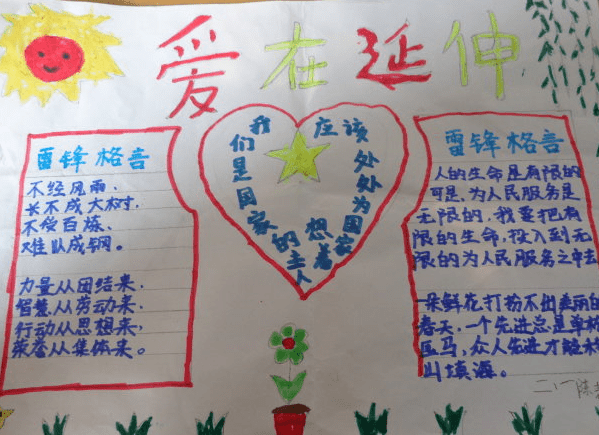 爱在延伸
雷锋格言
不经风雨、
长不成大树、
不受百炼、
难以成钢。
力量从团结来、
智慧从劳动来、
行动从思想来、
荣誉从集体来。
我们是国家的主人
应该处处为国家着想
雷锋格言
人的生命是有限的
可是,为人民服务是
无限的,我要把有
限的生命,投入到无
限的为人民服务之中去
一朵鲜花打扮不出美丽的
春天,一个先进总是单枪
匹马,众人先进才能移
山填海。
二、一 陈